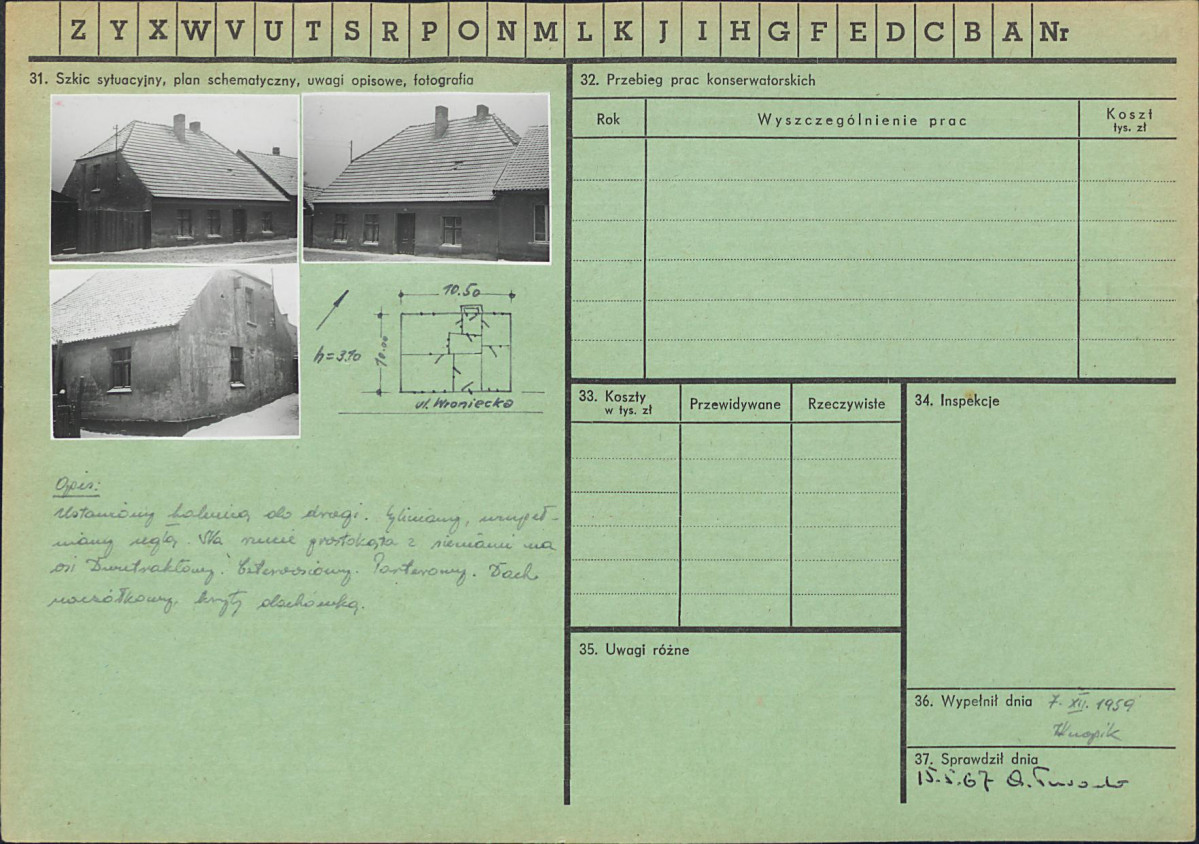 Z Y X W V U T S R P O N M L K J I H G F E D C B A Nr
31. Szkic sytuacyjny, plan schematyczny, uwagi opisowe, fotografia
10.50
10.00
h=3.10
ul. Wroniecka
Opis:
Ustawiony kalenicą do drogi. Gliniany, uzupeł-
niany cegłą. Na rzucie prostokąta z sieniami na
osi Dwutraktowy. Czteroosiowy. Parterowy. Dach
naczółkowy, kryty dachówką.
32. Przebieg prac konserwatorskich
Rok
Wyszczególnienie prac
Koszt
tys. zł
33. Koszty
w tys. zł
Przewidywane
Rzeczywiste
34. Inspekcje
35. Uwagi różne
36. Wypełnił dnia 7. XII. 1959
37. Sprawdził dnia
15.5.67